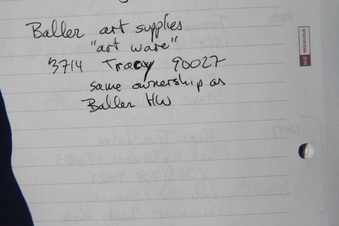 Baller art supplies
"art ware"
3714 Tracy 90027
same ownership as
Baller HW